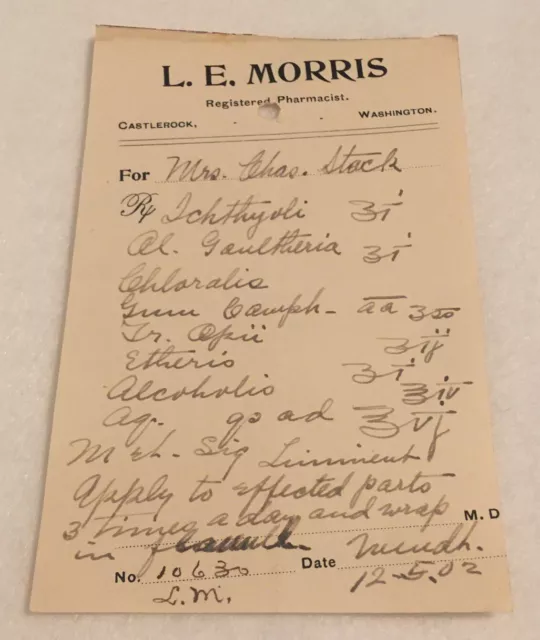 L. E. MORRIS
Registered Pharmacist.
CASTLEROCK, WASHINGTON.
For Mrs. Chas. Stock
Rx Ichthyoli ʒi
Ol. Gaultheria ʒi
Chloralis
Gum Camph- aa ʒss
Tr. Opii ʒij
Etheris ʒi
Alcoholis ʒiv
Aq. qs ad ℥vj
M et- Sig Liniment
Apply to effected parts
3 times a day and wrap M. D
in flannel.
No. 10630 Date 12-5.02
L.M.